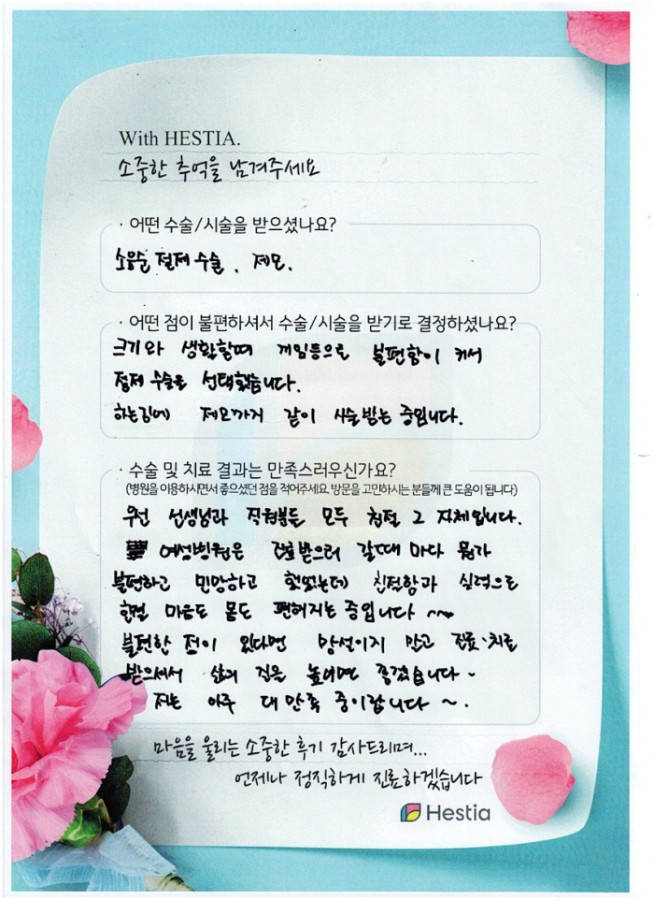 With HESTIA.
소중한 추억을 남겨주세요
· 어떤 수술/시술을 받으셨나요?
소음순 절제 수술. 제모.
· 어떤 점이 불편하셔서 수술/시술을 받기로 결정하셨나요?
크기와 생활할때 끼임등으로 불편함이 커서
절제 수술을 선택했습니다.
하는김에 제모까지 같이 시술받는 중입니다.
· 수술 및 치료 결과는 만족스러우신가요?
(병원을 이용하시면서 좋으셨던 점을 적어주세요. 방문을 고민하시는 분들께 큰 도움이 됩니다)
우선 선생님과 직원분들 모두 친절 그 자체입니다.
여성병원은 진료받으러 갈때 마다 뭔가
불편하고 민망하고 했었는데 친절함과 실력으로
한결 마음도 몸도 편해지는 중입니다 ~~
불편한 점이 있다면 망설이지 말고 진료·치료
받으셔서 삶의 질을 높이면 좋겠습니다~
저는 아주 대만족 중이랍니다 ~.
마음을 울리는 소중한 후기 감사드리며...
언제나 정직하게 진료하겠습니다
Hestia